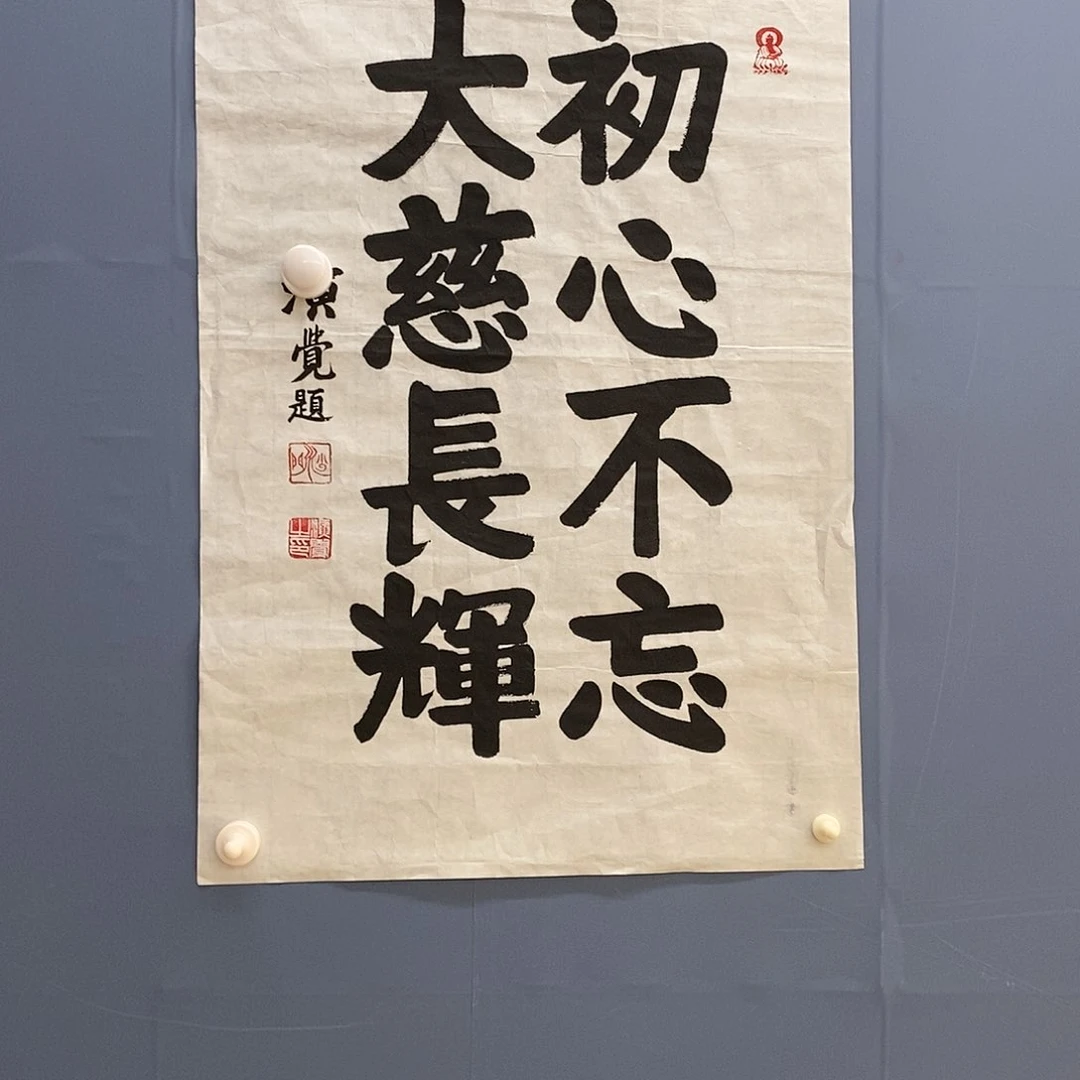 初心不忘
大慈長輝
演覺題